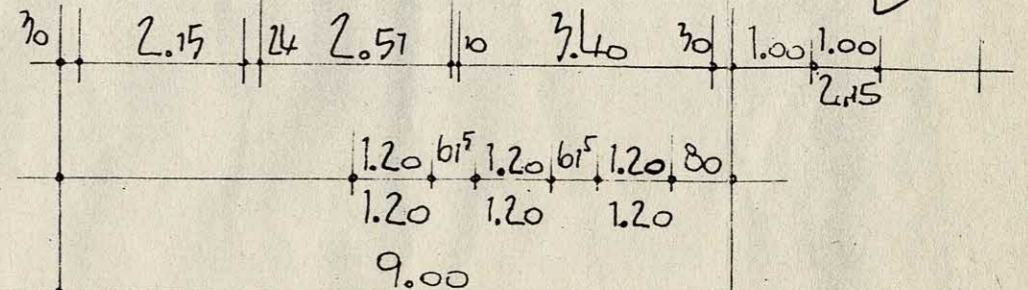 30 2.15 24 2.51 10 3.40 30 1.00 1.00
2.15
1.20 61⁵ 1.20 61⁵ 1.20 80
1.20 1.20 1.20
9.00